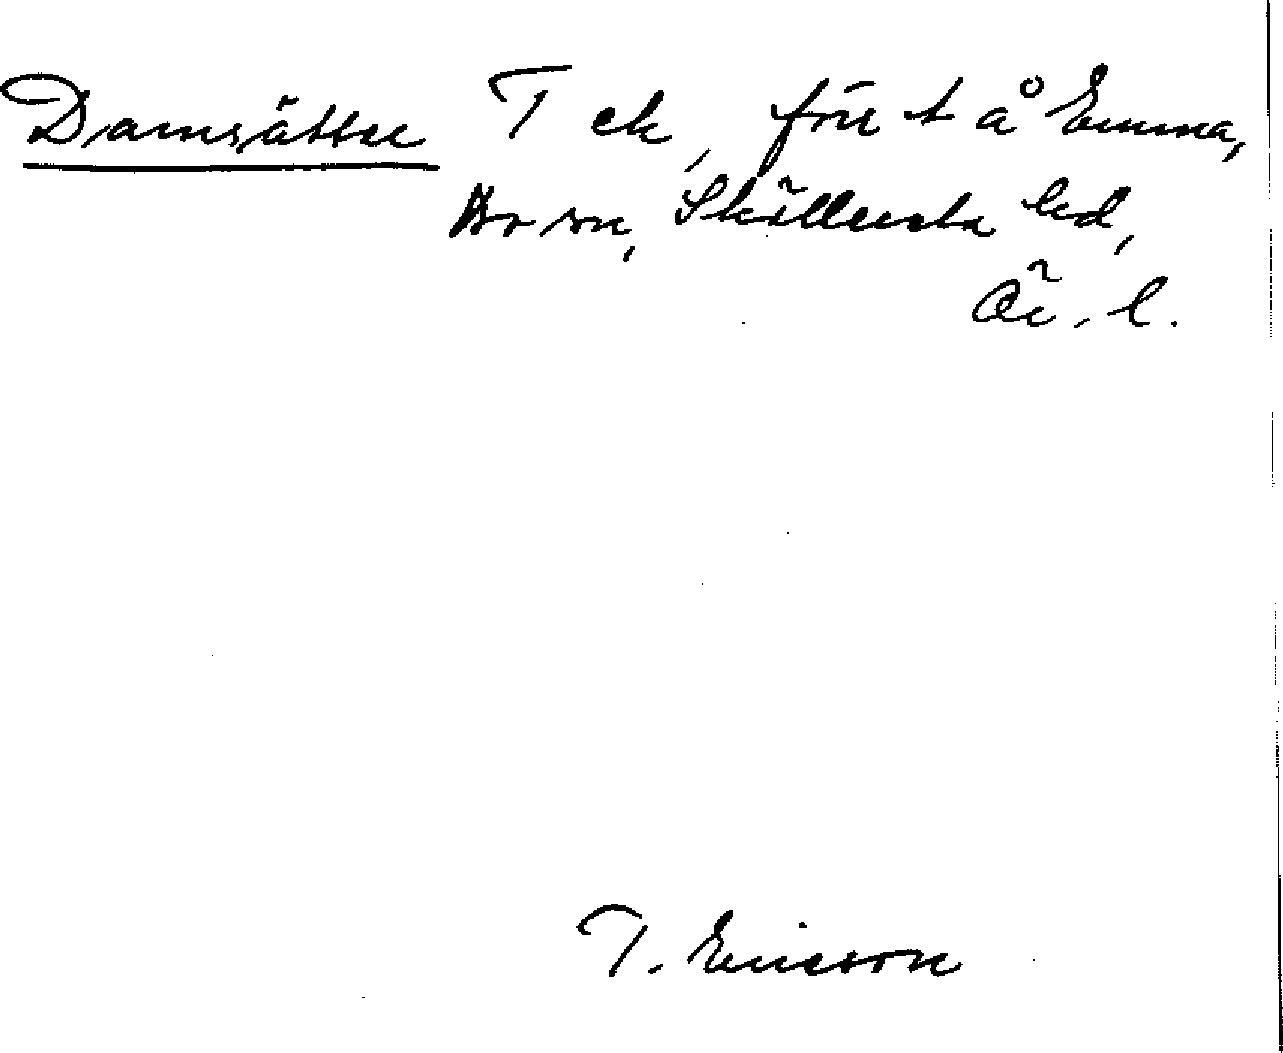 Damsätter T ek, förr t å Emma,
Bo sn, Sköllersta hd,
Ör. l.
T. Ericson